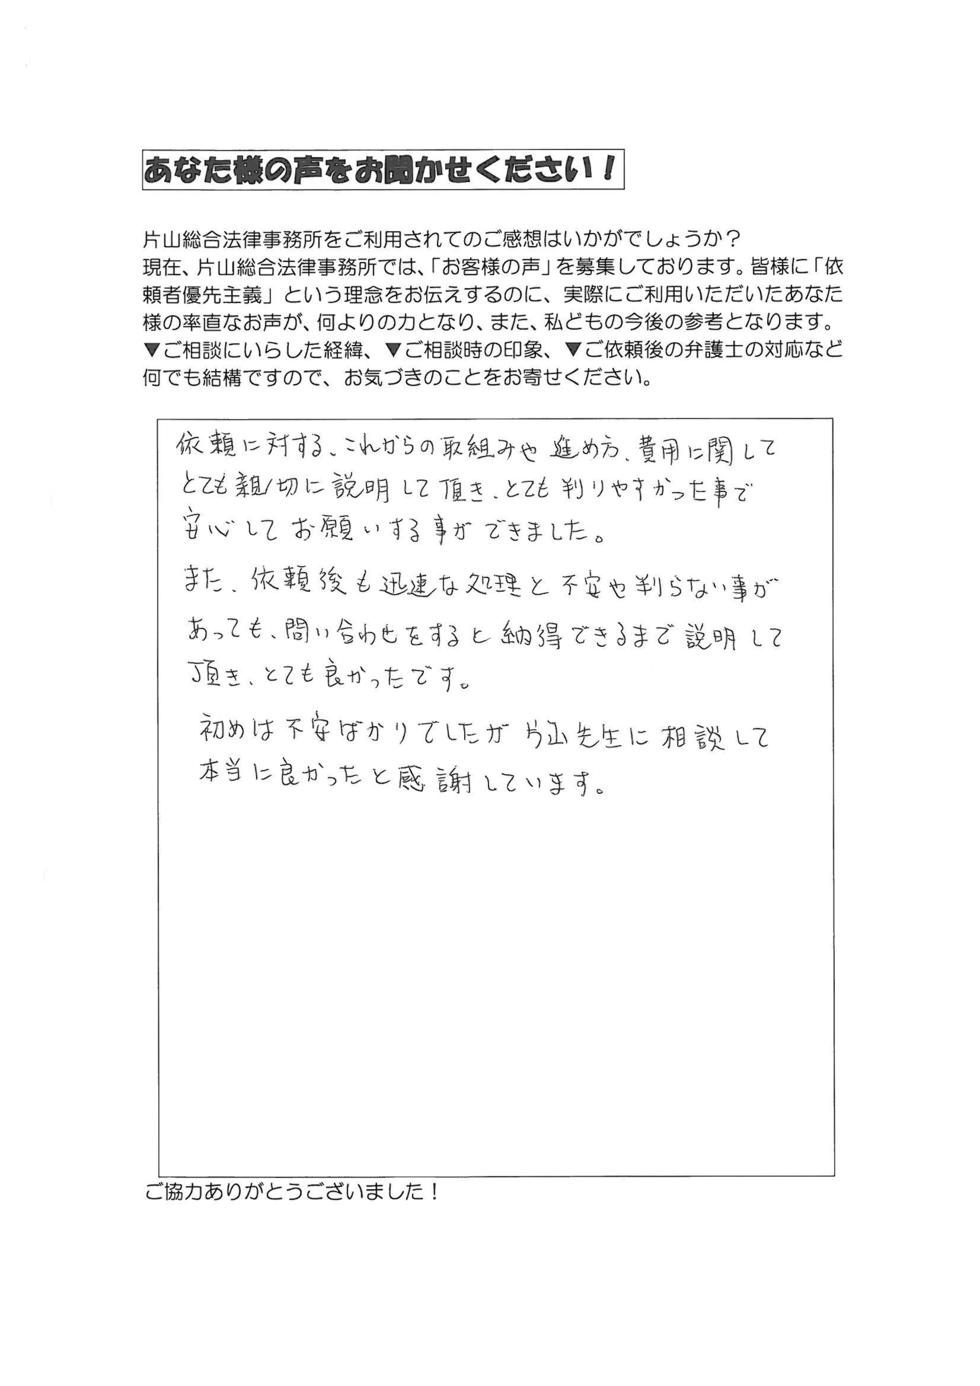 あなた様の声をお聞かせください！
片山総合法律事務所をご利用されてのご感想はいかがでしょうか？
現在、片山総合法律事務所では、「お客様の声」を募集しております。皆様に「依
頼者優先主義」という理念をお伝えするのに、実際にご利用いただいたあなた
様の率直なお声が、何よりの力となり、また、私どもの今後の参考となります。
▼ご相談にいらした経緯、▼ご相談時の印象、▼ご依頼後の弁護士の対応など
何でも結構ですので、お気づきのことをお寄せください。
依頼に対する、これからの取組みや進め方、費用に関して
とても親切に説明して頂き、とても判りやすかった事で
安心してお願いする事ができました。
また、依頼後も迅速な処理と不安や判らない事が
あっても、問い合わせをすると納得できるまで説明して
頂き、とても良かったです。
初めは不安ばかりでしたが片山先生に相談して
本当に良かったと感謝しています。
ご協力ありがとうございました！